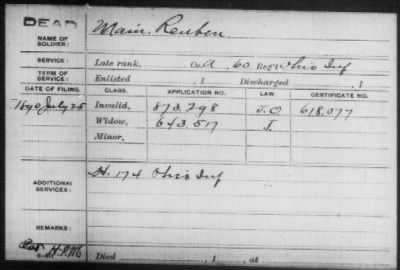 DEAD
NAME OF SOLDIER: Main, Reuben
SERVICE: Late rank, Co. A, 60 Reg't Ohio Inf
TERM OF SERVICE: Enlisted , 1 Discharged , 1
DATE OF FILING. CLASS. APPLICATION NO. LAW. CERTIFICATE NO.
1890 July 25 Invalid, 873,298 J.O 618,077
Widow, 643,517 J.
Minor,
ADDITIONAL SERVICES: H. 174 Ohio Inf
REMARKS:
Died , 1 , at